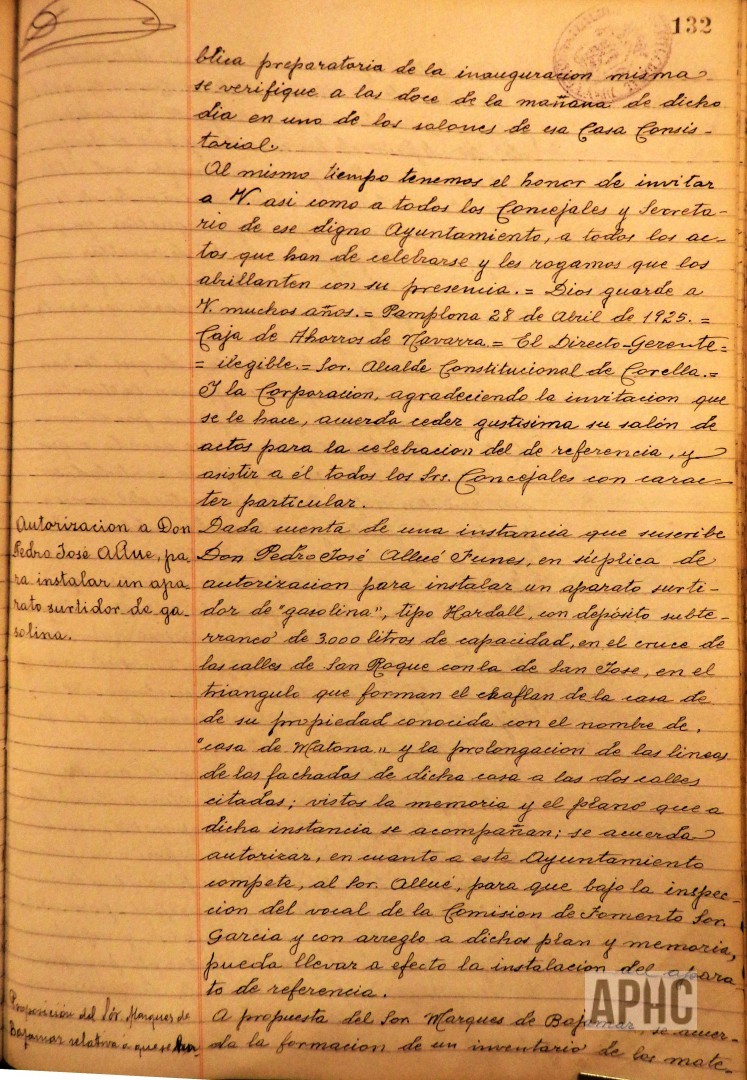 132
blica preparatoria de la inauguracion misma
se verifique a las doce de la mañana de dicho
dia en uno de los salones de esa Casa Consis-
torial.
Al mismo tiempo tenemos el honor de invitar
a V. asi como a todos los Concejales y Secreta-
rio de ese digno Ayuntamiento, a todos los ac-
tos que han de celebrarse y les rogamos que los
abrillanten con su presencia. = Dios guarde a
V. muchos años. = Pamplona 28 de Abril de 1925. =
Caja de Ahorros de Navarra. = El Directo-Gerente =
= ilegible. = Sor. Alcalde Constitucional de Corella. =
Y la Corporacion, agradeciendo la invitacion que
se le hace, acuerda ceder gustisima su salón de
actos para la celebracion del de referencia, y
asistir a él todos los Srs. Concejales con carac-
ter particular.
Autorizacion a Don
Pedro José Allue, pa-
ra instalar un apa-
rato surtidor de ga-
solina.
Dada cuenta de una instancia que suscribe
Don Pedro José Allué Funes, en súplica de
autorizacion para instalar un aparato surti-
dor de "gasolina", tipo Hardall, con depósito subte-
rraneo de 3.000 litros de capacidad, en el cruce de
las calles de San Roque con la de San Jose, en el
triangulo que forman el chaflan de la casa de
de su propiedad conocida con el nombre de,
"casa de Matona" y la prolongacion de las lineas
de las fachadas de dicha casa a las dos calles
citadas; vistos la memoria y el plano que a
dicha instancia se acompañan; se acuerda
autorizar, en cuanto a este Ayuntamiento
compete, al Sor. Allué, para que bajo la inspec-
cion del vocal de la Comision de Fomento Sor.
Garcia y con arreglo a dichos plan y memoria,
pueda llevar a efecto la instalacion del apara-
to de referencia.
Proposición del Sór. Marques de
Bajamar relativa a que se
A propuesta del Sor Marques de Bajamar, se acuer-
da la formacion de un inventario de los mate-
APHC